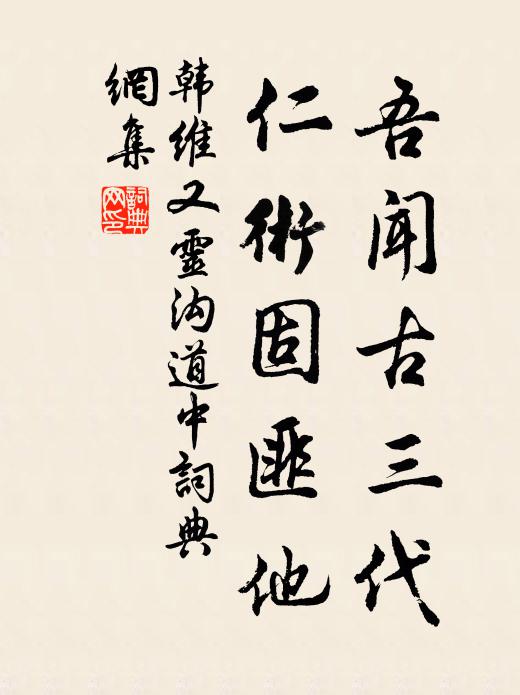 吾闻古三代
仁術固匪他
韩维又靈沟道中詞典
網集
詞典
网印